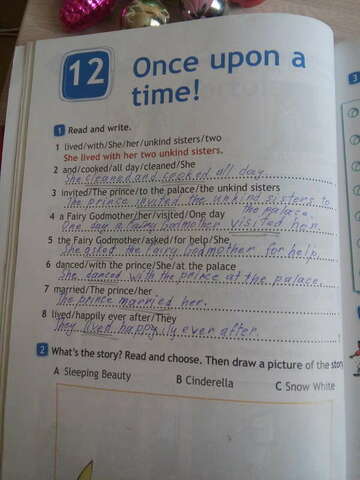 12
Once upon a
time!
1 Read and write.
1 lived/with/She/her/unkind sisters/two
She lived with her two unkind sisters.
2 and/cooked/all day/cleaned/She
She cleaned and cooked all day.
3 invited/The prince/to the palace/the unkind sisters
The prince invited the unkind sisters to
the palace.
4 a Fairy Godmother/her/visited/One day
One day a Fairy Godmother visited her.
5 the Fairy Godmother/asked/for help/She
She asked the Fairy Godmother for help.
6 danced/with the prince/She/at the palace
She danced with the prince at the palace.
7 married/The prince/her
The prince married her.
8 lived/happily ever after/They
They lived happily ever after.
2 What's the story? Read and choose. Then draw a picture of the story
A Sleeping Beauty
B Cinderella
C Snow White